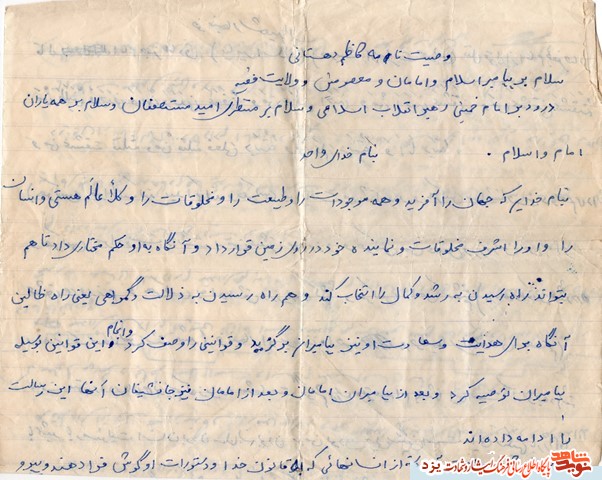 وصیت نامه کاظم دهستانی
سلام بر پیامبر اسلام و امامان و معصومین و ولایت فقیه
درود بر امام خمینی رهبر انقلاب اسلامی و سلام بر منتظری امید مستضعفان و سلام بر همه یاران
امام و اسلام . بنام خدای واحد
بنام خدایی که جهان را آفرید و همه موجودات را و طبیعت را و مخلوقات را و کلاً عالم هستی و انسان
را و او را اشرف مخلوقات و نماینده خود در روی زمین قرار داد و آنگاه به او حکم مختاری داد تا هم
بتواند راه رسیدن به رشد و کمال را انتخاب کند و هم راه رسیدن به ذلالت و گمراهی یعنی راه ظالین
آنگاه برای هدایت و سعادت او نیز پیامبرانی برگزید و قوانینی را وصف کرد و اتمام و این قوانین بوسیله
پیامبران توصیه کرد و بعد از پیامبران امامان و بعد از امامان نیز جانشینان آنها این رسالت
را ادامه داده‌اند
از انسانهائی که به قانون خدا و دستورات او گوش فرا دهند و پیرو
نوید شاهد پایگاه اطلاع رسانی فرهنگ ایثار و شهادت یزد